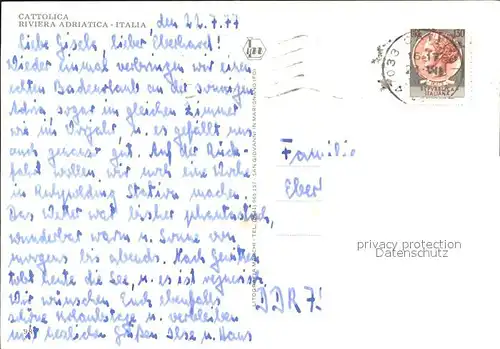 CATTOLICA
RIVIERA ADRIATICA - ITALIA
den 22.7.77
Liebe Gisela, lieber Eberhard!
Wieder einmal verbringen wir einen
echten Badeurlaub an der sonnigen
Adria sogar im gleichen Zimmer
wie im Vorjahr u. es gefällt uns
auch genauso gut. Auf der Rück-
fahrt wollen wir noch eine Woche
in Ruhpolding Station machen.
Das Wetter war bisher phantastisch,
wunderbar warm u. Sonne von
morgens bis abends. Nach Gewitter
tobt heute die See, u. es ist regnerisch
Wir wünschen Euch ebenfalls
schöne Urlaubstage u. verbleiben
mit herzlichen Grüßen Ilse u. Hans
Familie
Eber
DDR 7!
130
47033
privacy protection
Datenschutz